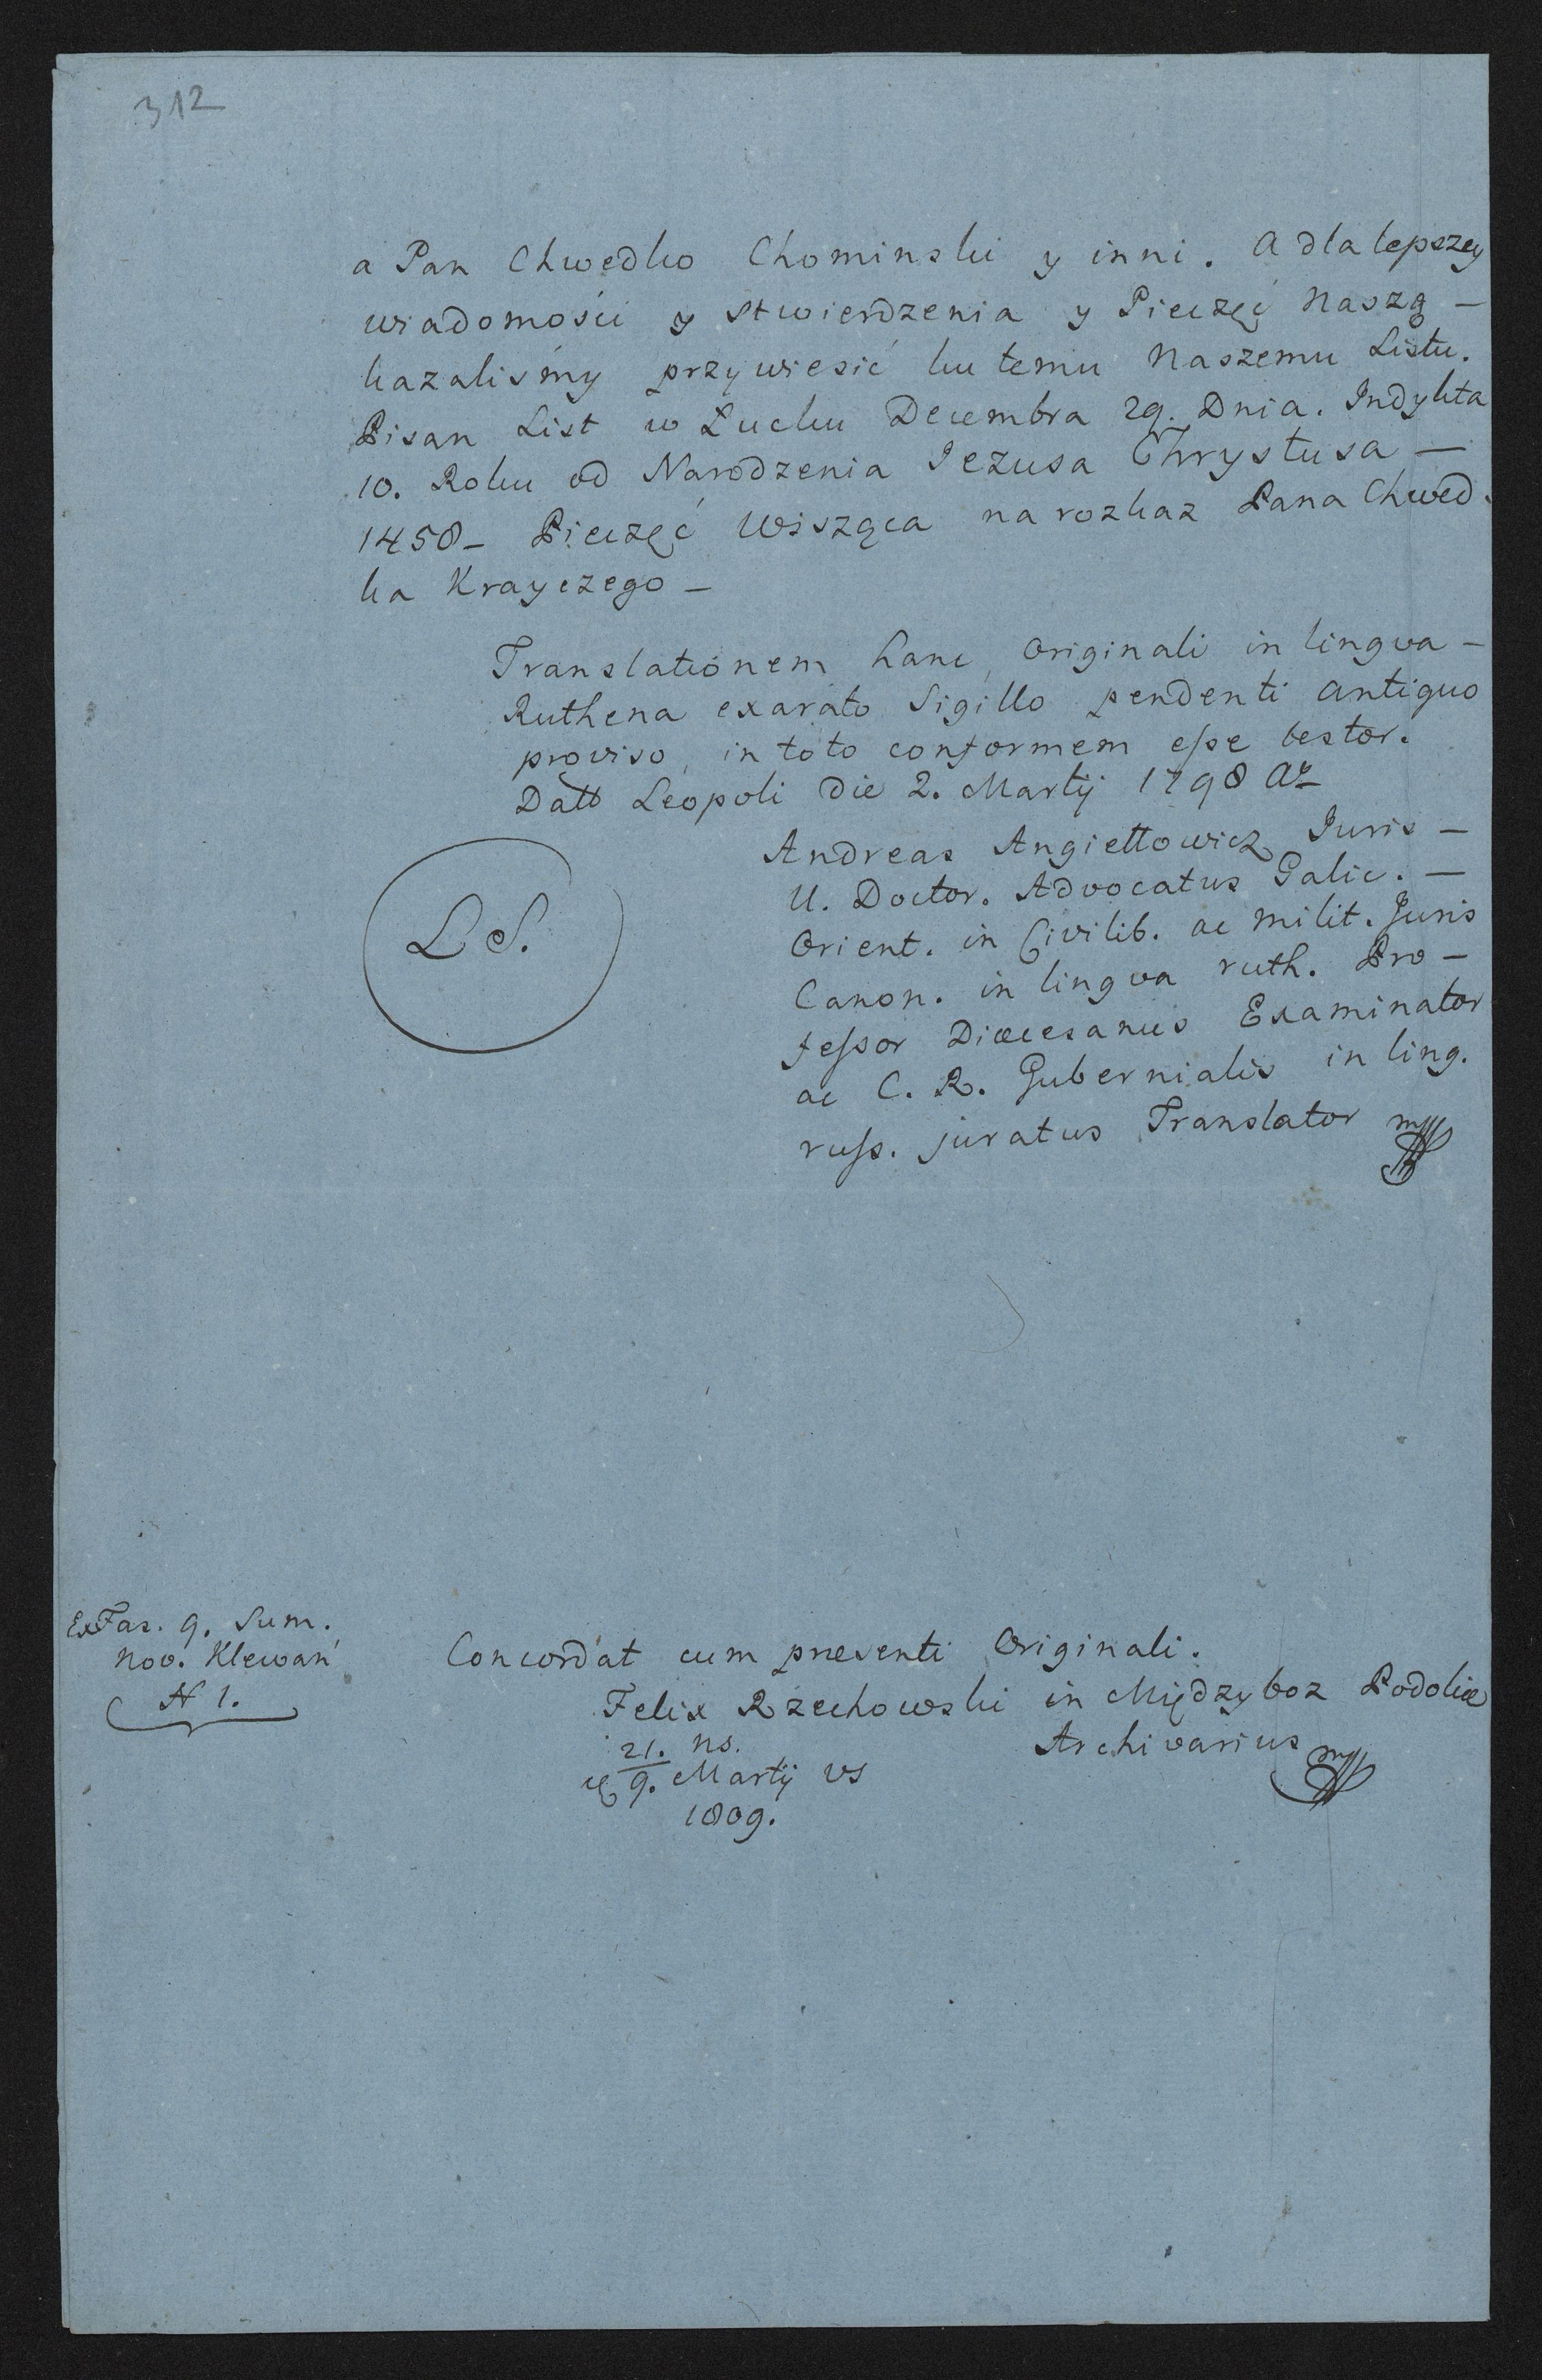 312
a Pan Chwedko Chominski y inni. A dla lepszey
wiadomości y stwierdzenia y Pieczęć Naszą —
kazaliśmy przywiesić ku temu Naszemu Listu.
Pisan List w Łucku Decembra 29. Dnia. Indykta
10. Roku od Narodzenia Jezusa Chrystusa —
1458 — Pieczęć Wisząca na rozkaz Pana Chwed-
ka Krayczego —
Translationem hanc, originali in lingva —
Ruthena exarato Sigillo pendenti antiquo
proviso, in toto conformem eſse testor.
Datt Leopoli die 2. Martij 1798
Andreas Angiellowicz Juris —
U. Doctor. Advocatus Galic. —
Orient. in Civilib. ac milit. Juris
Canon. in lingva ruth. Pro —
feſsor Diœcesanus Examinator
ac C. R. Gubernialis in ling.
ruſs. juratus Translator mp
L S.
Ex Fas. 9. Sum.
nov. Klewań
N 1.
Concordat cum presenti Originali.
Felix Rzechowski in Międzyboz Podoliæ
Archivarius mp
21. ns.
9. Martij vs
1809.